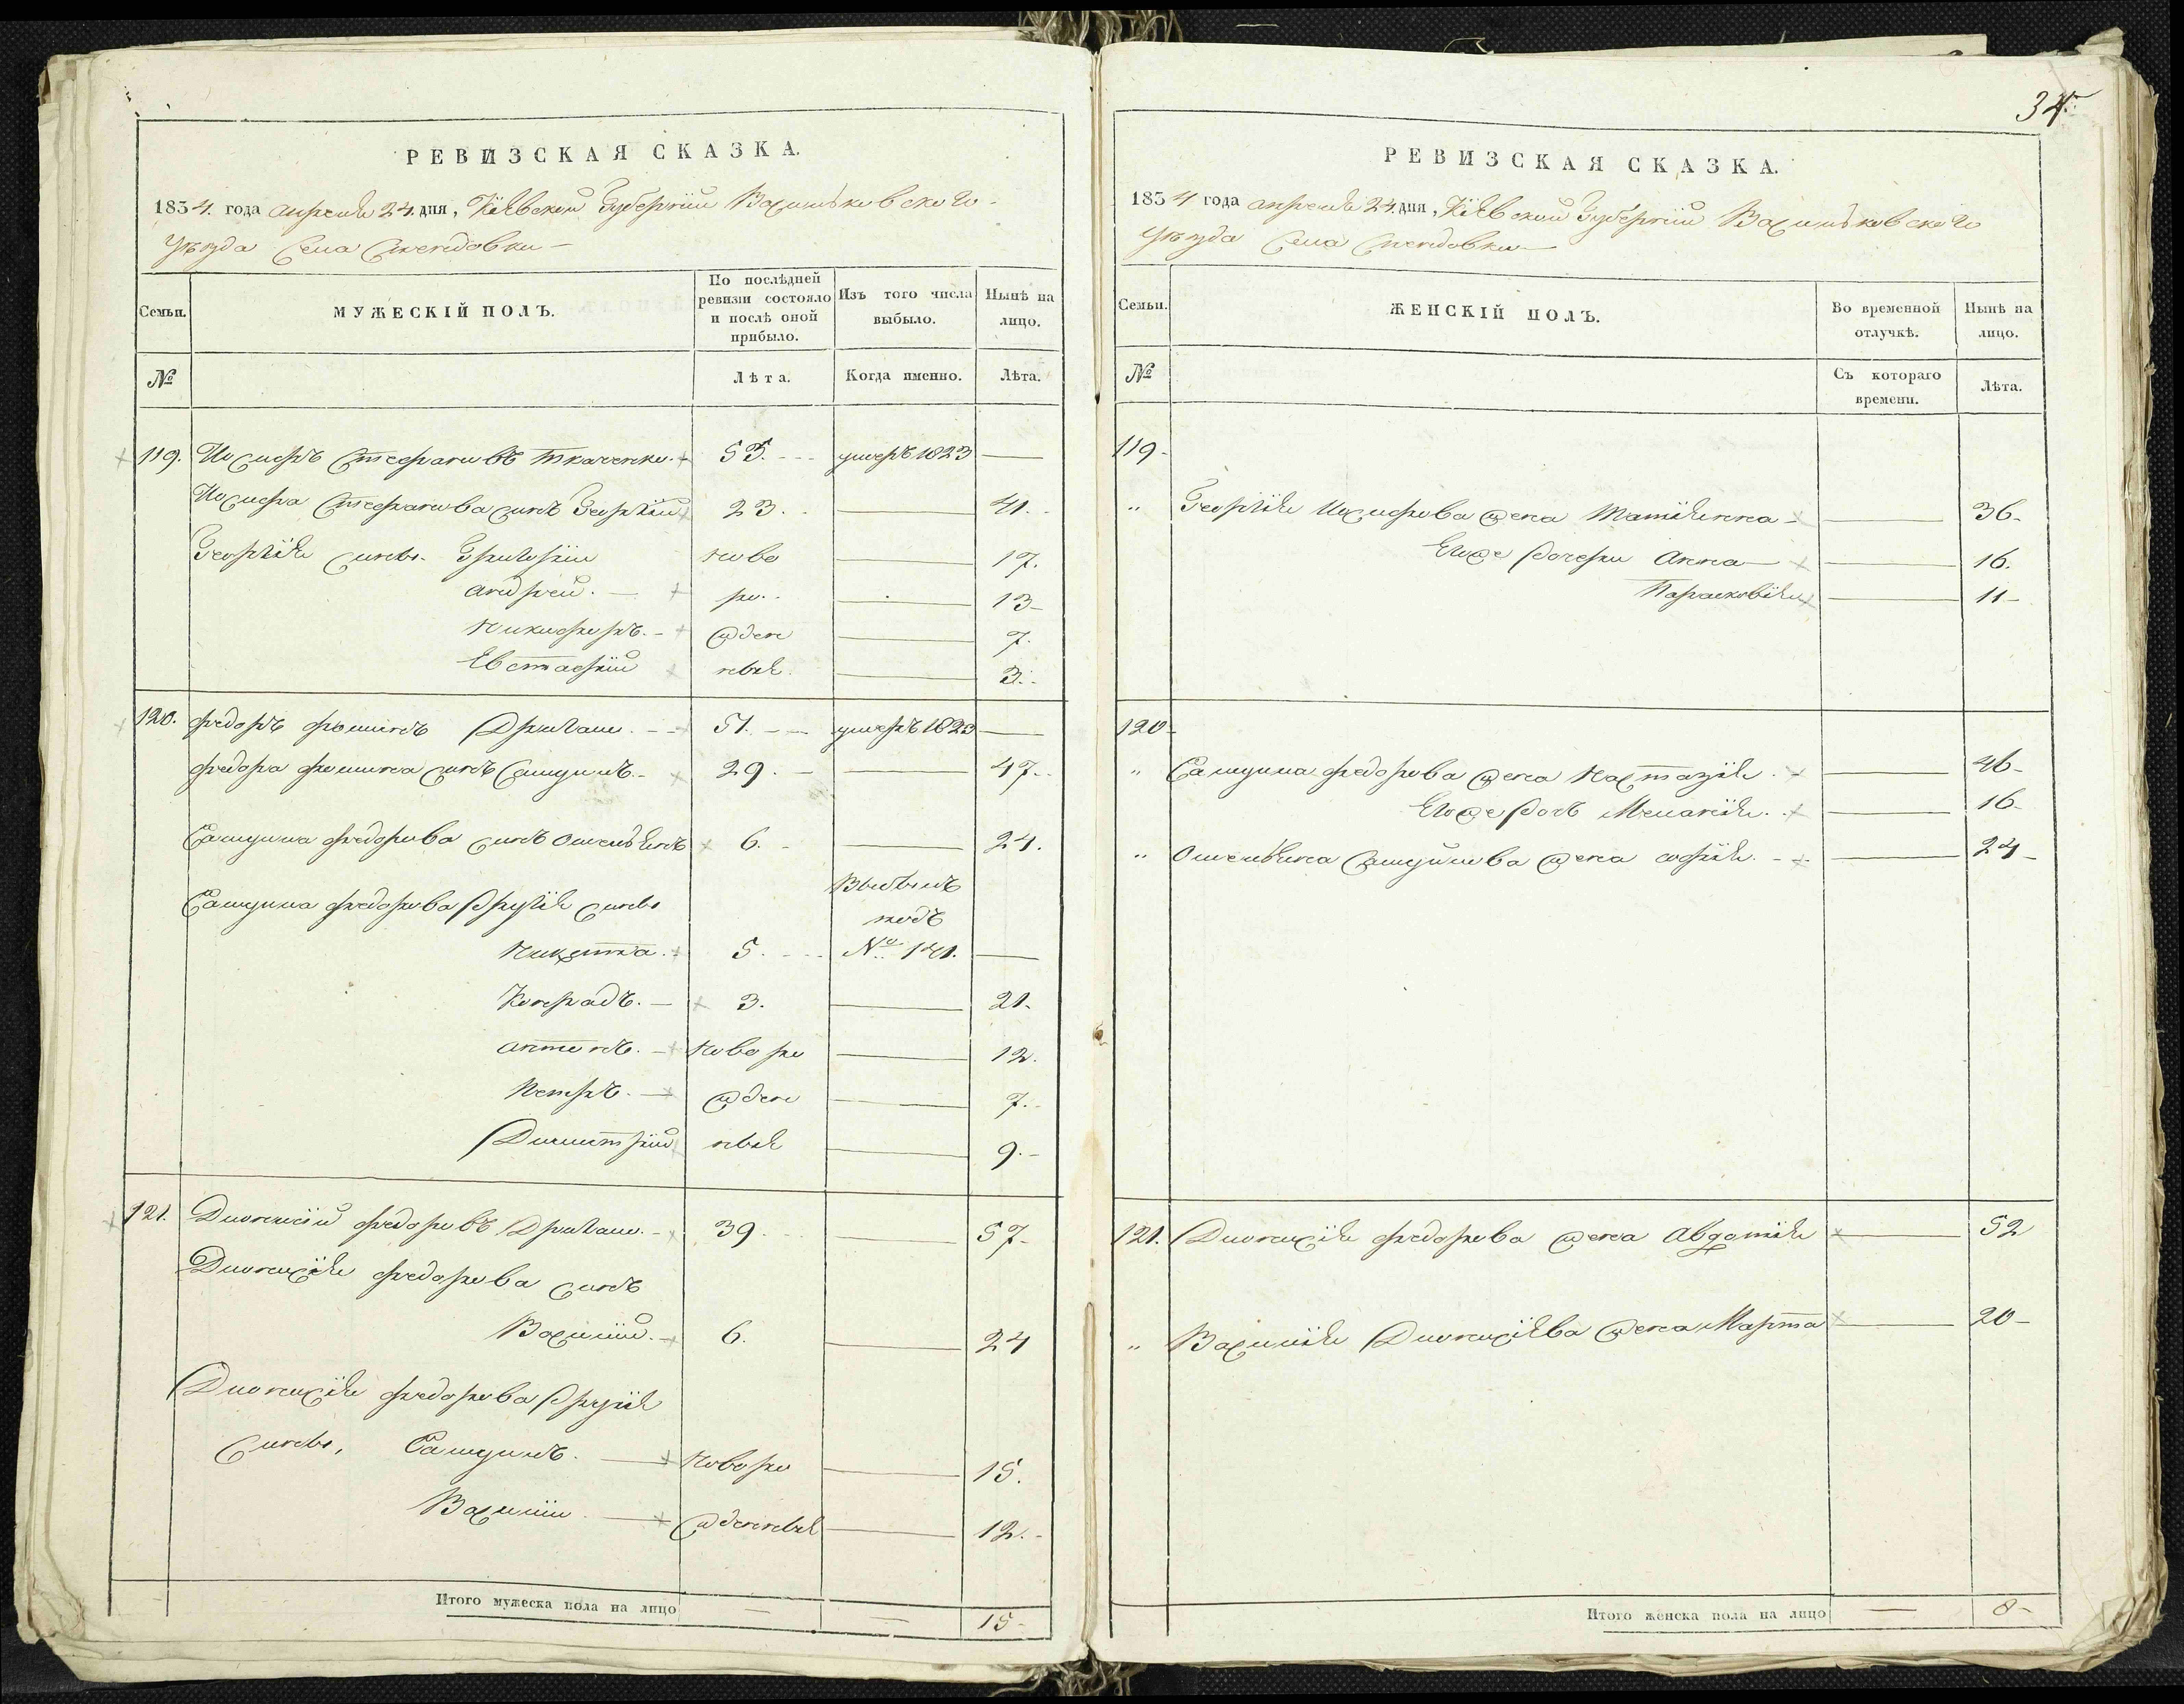 РЕВИЗСКАЯ СКАЗКА.
1834. года апреля 24. дня, Кіевской Губерніи Васильковскаго
уѣзда Села
Семьи.
МУЖЕСКІЙ ПОЛЪ.
По послѣдней ревизіи состояло и послѣ оной прибыло.
Изъ того числа выбыло.
Нынѣ на лицо.
№
Лѣта.
Когда именно.
Лѣта.
119. Иосифъ Стефановъ Ткаченко. 53. умеръ 1823 —
Иосифа Стефанова сынъ Георгій 23. — 41.
Георгія сыновья Григорій ново — 17.
Андрей. — ро — 13
Никифоръ. — жден — 7.
Евстафій ныя. — 3.
120. Федоръ Фоминъ Дригало. 51. умеръ 1823 —
Федора Фомина сынъ Самуилъ. 29. — 47.
Самуила Федорова сынъ Омельянъ 6. — 24.
Самуила Федорова другія сыны
Никита. 5. № 141. —
Конрадъ. — 3. — 21.
Антонъ. — Новоро — 12.
Петръ. — жден — 7.
Димитрій ныя — 9.
121. Дионисій Федоровъ Дригало. 39. — 57.
Дионисія Федорова сынъ
Василій. 6. — 24
Дионисія Федорова другія
сыны, Самуилъ. — Новоро — 15.
Василій — жденныя — 12.
Итого мужеска пола на лицо — — 15
34.
РЕВИЗСКАЯ СКАЗКА.
1834 года апреля 24. дня, Кіевской Губерніи Васильковскаго
уѣзда Села
Семьи.
ЖЕНСКІЙ ПОЛЪ.
Во временной отлучкѣ.
Нынѣ на лицо.
№
Съ котораго времени.
Лѣта.
119
" Георгія Иосифова жена Татіянна — 36
Егоже дочери Анна — 16.
Парасковія — 11
120
" Самуила Федорова жена Настазія. — 46
Егоже дочь Меланія. — 16
" Омельяна Самуйлова жена Софія. — 24
121. Дионисія Федорова жена Авдотія — 52
" Василія Дионисіева жена Марта — 20
Итого женска пола на лицо — 8